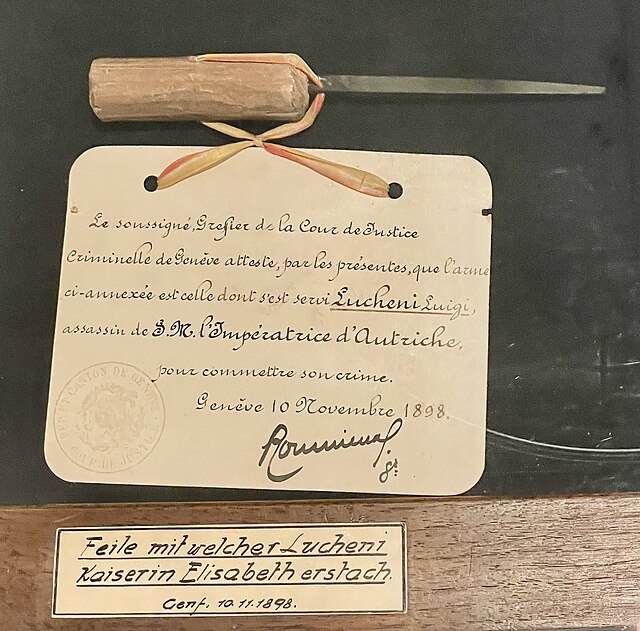 Le soussigné, Grefier de la Cour de Justice
Criminelle de Genève atteste, par les présentes, que l'arme
ci-annexée est celle dont s'est servi Lucheni Luigi,
assassin de S.M. l'Impératrice d'Autriche,
pour commettre son crime.
Genève 10 Novembre 1898.
CANTON DE
COUR DE JUSTICE
Feile mit welcher Lucheni
Kaiserin Elisabeth erstach.
Genf. 10.11.1898.